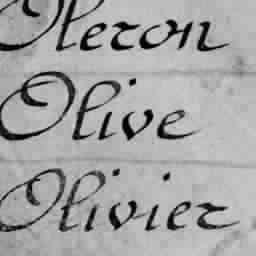 Oleron
Olive
Olivier